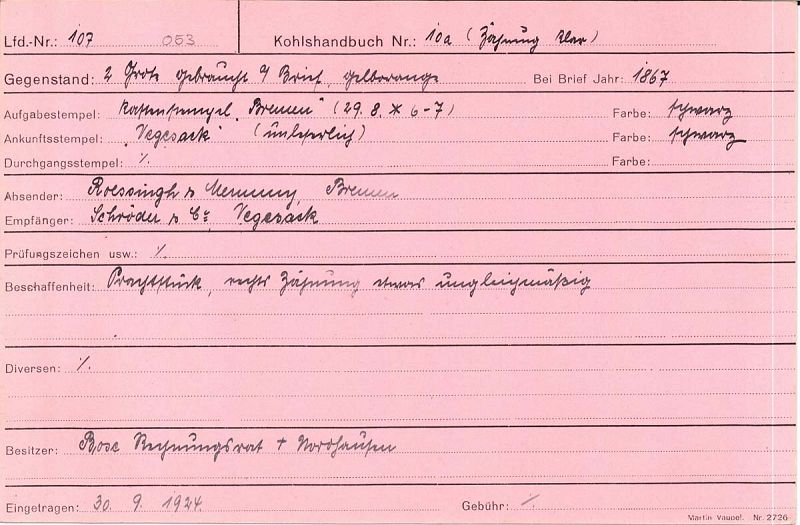 Lfd.-Nr.: 107 053 Kohlshandbuch Nr.: 10a (Zähnung klar)
Gegenstand: 2 Grote gebraucht a/ Brief, gelborange Bei Brief Jahr: 1867
Aufgabestempel: Kastenstempel „Bremen" (29. 8. * 6-7) Farbe: schwarz
Ankunftsstempel: „Vegesack" (unleserlich) Farbe: schwarz
Durchgangsstempel: ./. Farbe:
Absender: Roessingh & Bremen
Empfänger: Schröder & Co, Vegesack
Prüfungszeichen usw.: ./.
Beschaffenheit: Prachtstück, rechts Zähnung etwas ungleichmäßig
Diversen: ./.
Besitzer: Bose Rechnungsrat + Nordhausen
Eingetragen: 30. 9. 1924. Gebühr: ./.
Martin Vaupel. Nr. 2726